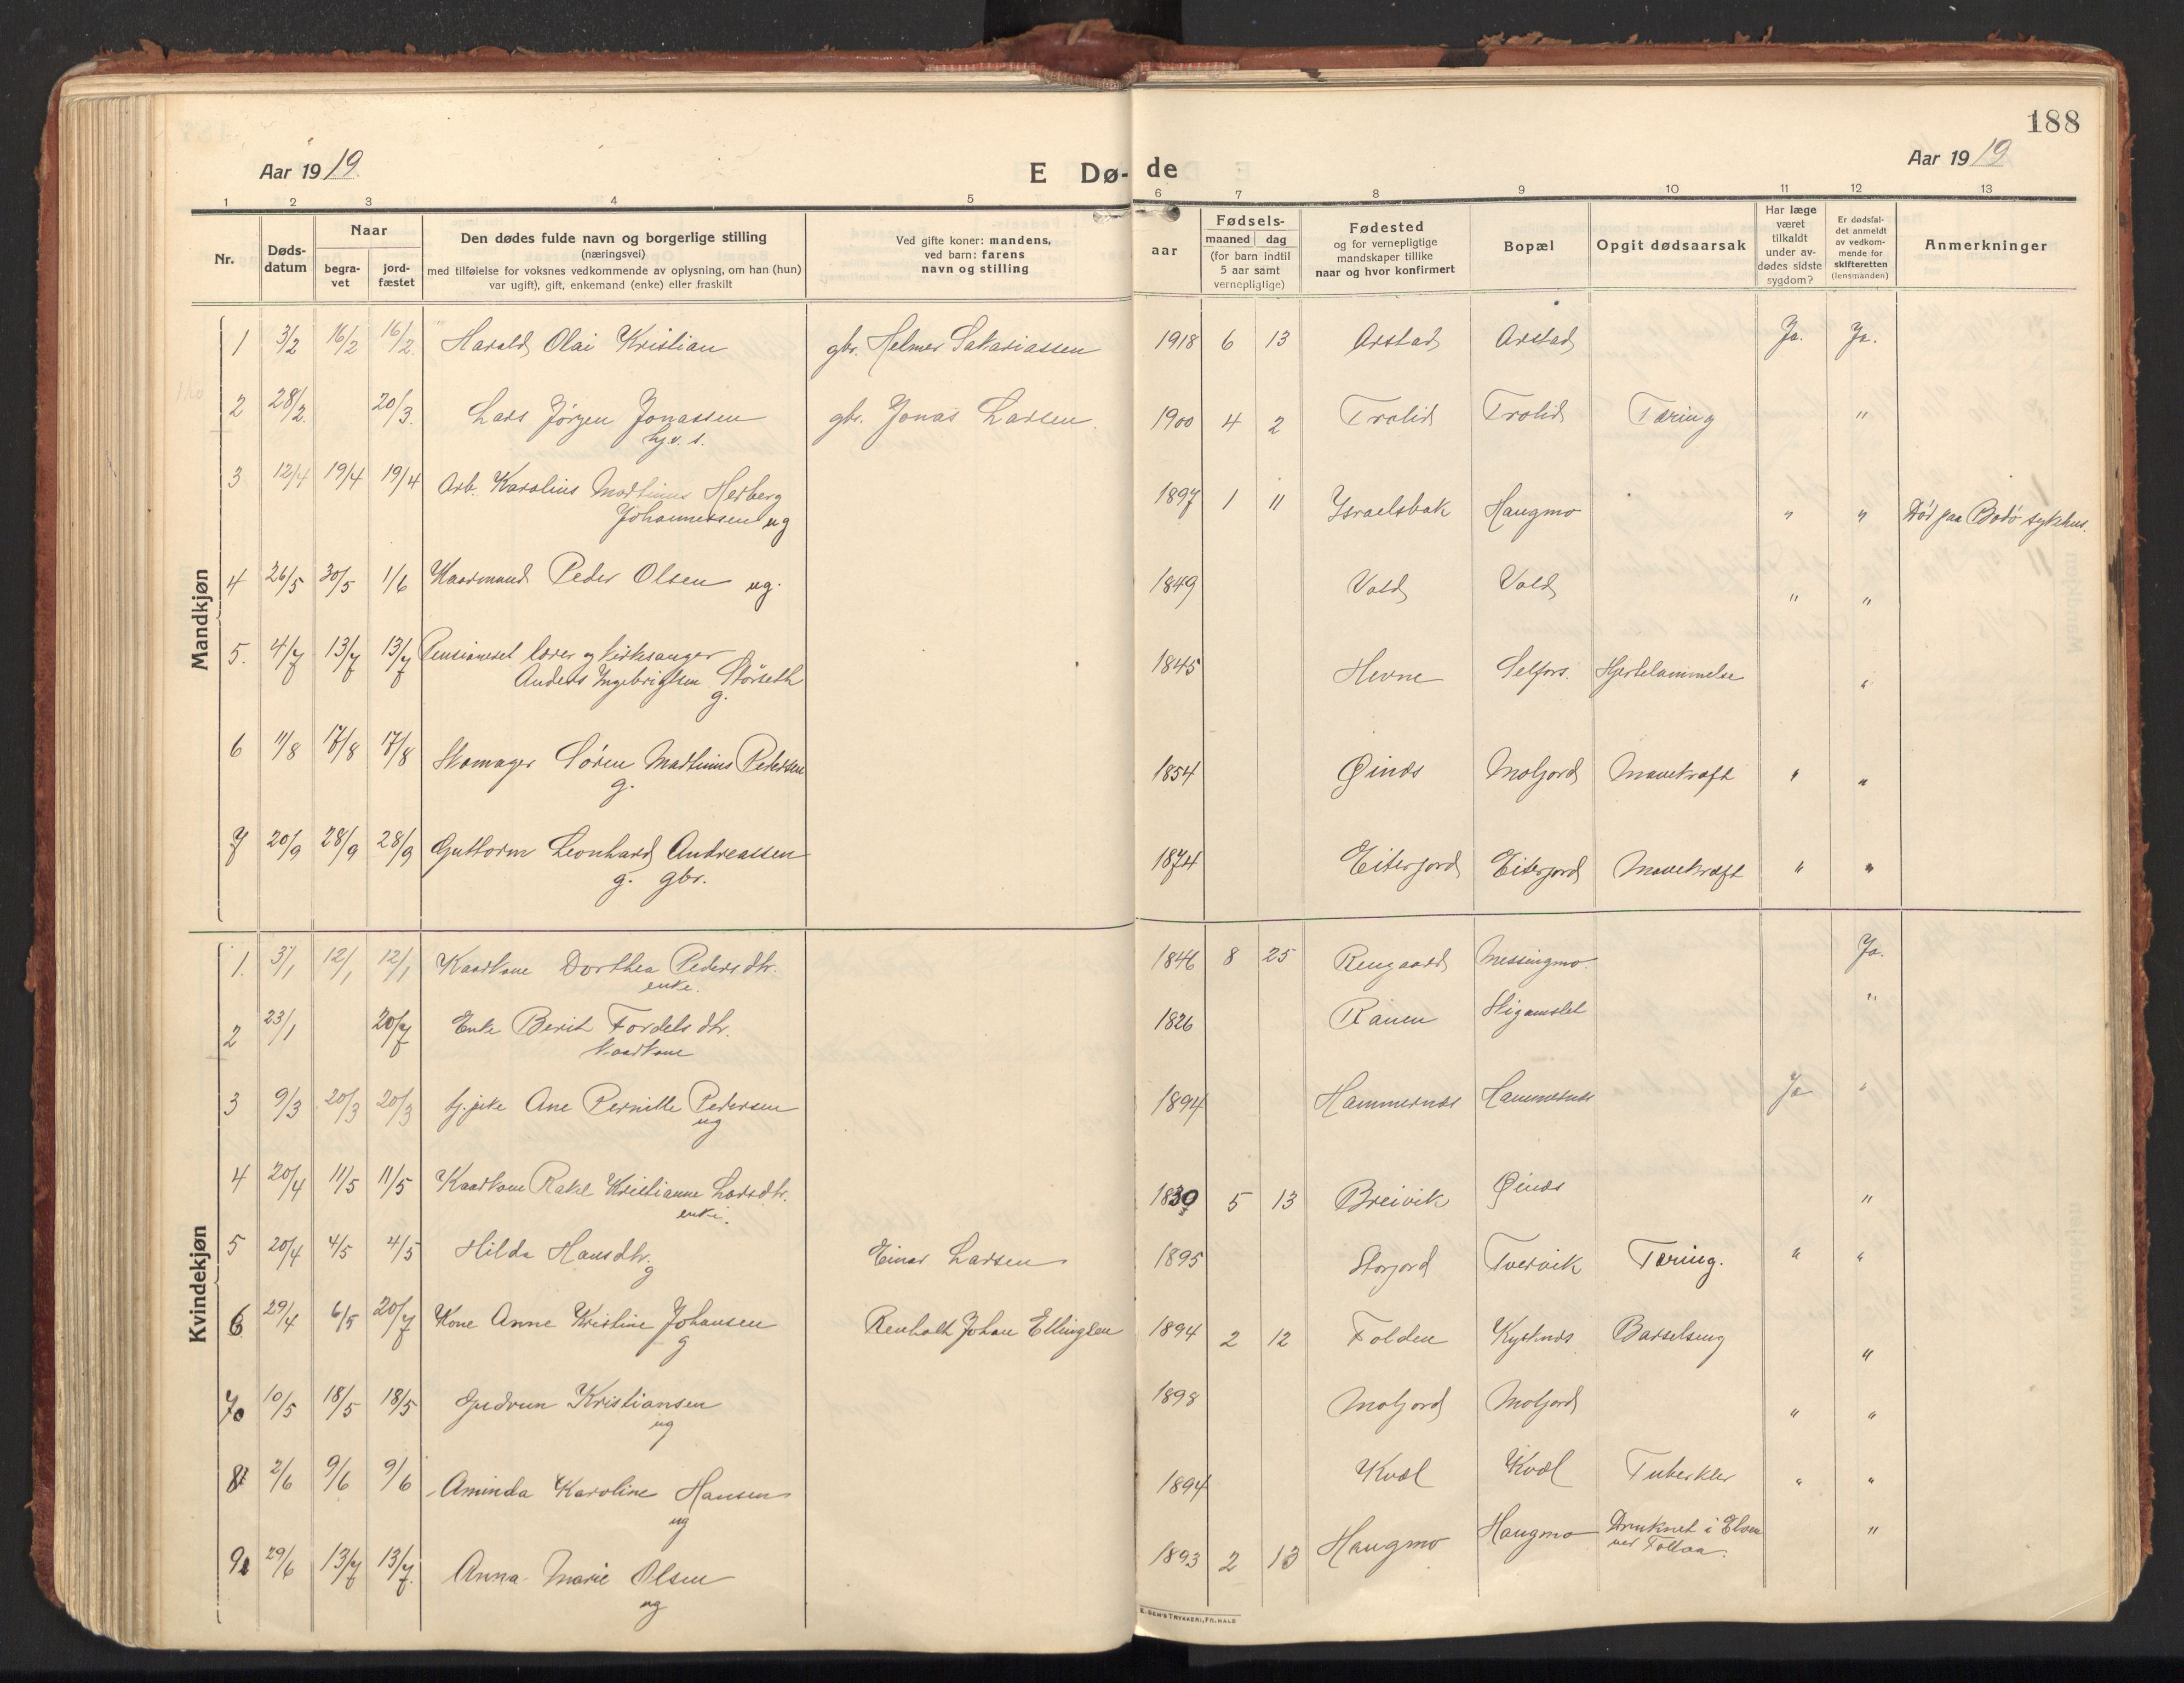 188
Aar 1919
E Dø-de
Aar 1919
1 2 3 4 5 6 7 8 9 10 11 12 13
Nr.
Døds-
datum
Naar
begra-
vet
jord-
fæstet
Den dødes fulde navn og borgerlige stilling
(næringsvei)
med tilføielse for voksnes vedkommende av oplysning, om han (hun)
var ugift), gift, enkemand (enke) eller fraskilt
Ved gifte koner: mandens,
ved barn: farens
navn og stilling
aar
Fødsels-
maaned dag
(for barn indtil
5 aar samt
vernepligtige)
Fødested
og for vernepligtige
mandskaper tillike
naar og hvor konfirmert
Bopæl
Opgit dødsaarsak
Har læge
været
tilkaldt
under av-
dødes sidste
sygdom?
Er dødsfal-
det anmeldt
av vedkom-
mende for
skifteretten
(lensmanden)
Anmerkninger
Mandkjøn
1 3/2 16/2 16/2. Harald Olai Kristian gbr. Helmer Sakariassen 1918 6 13 Arstad Arstad Ja. Ja.
2 28/2. 20/3. Lars Jørgen Jonassen gbr. Jonas Larsen. 1900 4 2 Trolid Trolid Tæring "
3 12/4 19/4 19/4 Arb. Karolius Martinus Herberg
Johannessen ug 1897 1 11 Israelsbak Haugmo " " Død paa Bodø sykhus.
4 26/5 30/5 1/6 Kaarmand Peder Olsen ug. 1849 Vold Vold " "
5. 4/7 13/7 13/7 Pensioneret lærer og kirkesanger
Anders Ingebrigtsen Störseth
g. 1845 Hevne Selfors. Hjertelammelse "
6 11/8 17/8 17/8 Skomager Sören Martinus Pedersen
g. 1854 Øinæs Moljord Mavekræft " "
7 20/9 28/9 28/9 Guttorm Leonhard Andreassen
g. gbr. 1874 Eiterjord Eiterjord Mavekræft " "
Kvindekjøn
1. 3/1 12/1 12/1 Kaarkone Dorthea Pedersdtr.
enke. 1846 8 25 Rengaard Messingmo. Ja.
2 23/1 20/7 Enke Berit Fordelsdtr.
kaarkone 1826 Ranen Stigamslet "
3 9/3 20/3 20/3 tj. pike Ane Pernille Pedersen
ug 1894 Hammernæs Hammernæs Ja "
4 20/4 11/5 11/5 Kaarkone Rakel Kristianne Larsdtr.
enke. 1830 5 13 Breivik Øinæs "
5 20/4 4/5 4/5 Hilda Hansdtr.
g Einar Larsen 1895 Storjord Tvervik Tæring. " "
6 29/4 6/5 20/7 Kone Anne Kristine Johansen
g Renholt Johan Ellingsen 1894 2 12 Folden Kystnæs Barselseng "
7 10/5 18/5 18/5 Gudrun Kristiansen
ug 1898 Moljord Moljord " "
8 2/6 9/6 9/6 Aminda Karoline Hansen
ug 1894 Kvæl Kvæl Tuberkler " "
9 29/6 13/7 13/7. Anna Marie Olsen
ug 1893 2 13 Haugmo Haugmo Druknet i Elven
ved Tollaa. "
E. SEM'S TRYKKERI, FR.HALD